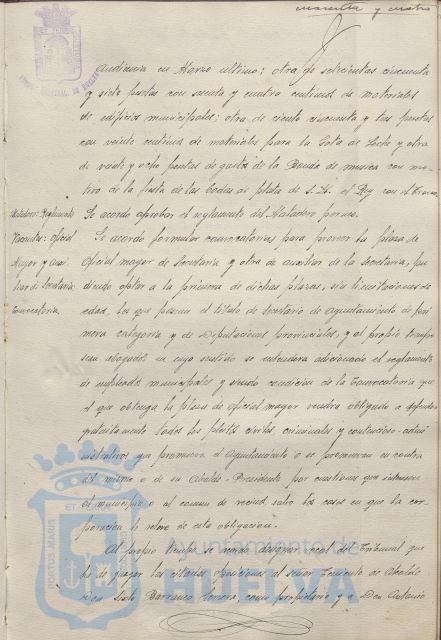 cuarenta y cuatro
audiencia en Marzo ultimo; otra de setecientas cincuenta
y siete pesetas con sesenta y cuatro centimos de materiales
de edificios municipales; otra de ciento cincuenta y tres pesetas
con veinte centimos de materiales para la Gota de Leche y otra
de veinte y ocho pesetas de gastos de la Banda de musica con mo-
tivo de la fiesta de las bodas de plata de S. M. el Rey con el Trono.
Matadero: Reglamento
Se acordo aprobar el reglamento del Matadero porcuno.
Vacantes: oficial
Mayor y auxi-
liar de Secretaria:
Convocatoria.
Se acordo formular convocatorias para proveer la plaza de
Oficial mayor de Secretaria y otra de auxiliar de la Secretaria, pu-
diendo optar a la primera de dichas plazas, sin limitaciones de
edad, los que posean el titulo de Secretario de Ayuntamiento de pri-
mera categoria y de Diputaciones provinciales, y al propio tiempo
sean abogados en cuyo sentido se entendera adicionado el reglamento
de empleados municipales y siendo condicion de la Convocatoria que
el que obtenga la plaza de oficial mayor vendra obligado a defender
gratuitamente todos los pleitos civiles, criminales y contencioso-admi-
nistrativos que promueva el Ayuntamiento o se promuevan en contra
del mismo o de su Alcalde-Presidente por cuestiones que interesen
al municipio o al comun de vecinos salvo los casos en que la cor-
poracion le releve de esta obligacion.
Al propio tiempo se acordo designar vocal del Tribunal que
ha de juzgar las citadas oposiciones al señor Teniente de Alcalde
Barranco como propietario y a Don Antonio
PORTUS MARIS ET
Ayuntamiento de
HUELVA